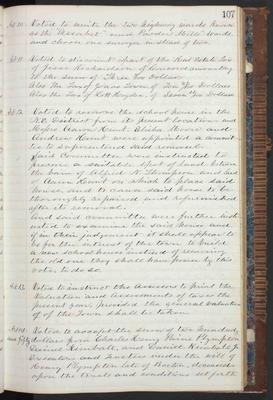 107
Art. 10. Voted to unite the two highway wards known
as the "Assabet" and "Powder Mills" wards,
and choose one surveyor instead of two.
Art. 11. Voted to discount a part of the Real Estate Tax
of Jesse Richardson, of Concord amounting
to the sum of Three Dollars
Also the Tax of Dollars
Also the Tax of Haynes of Dollars
Art. 12. Voted to remove the school house in the
N.E. District from its present location and
Messrs Aaron Hunt, Elisha Moore and
Andrew Hunt were appointed a commit
tee to superintend said removal.
Said Committee were instructed to
procure a suitable spot of land between
the barn of Alfred N. Thompson and land
of Aaron Hunt on which to place said
house, and to cause said house to be
thoroughly repaired and refurnished
after its removal.
And said committee were further auth
to examine the said house and
if in their judgement it shall appear to
be for the interest of the town to build
a new school house instead of removing
the old one they shall have power by this
vote to do so.
Art. 13. Voted to instruct the Assessors to print the
Valuation and assessments of taxes the
present year, provided the usual valuation
of the Town shall be taken.
Art. 14. Voted to accept the sum of two hundred
dollars from Charles Henry Plympton
Daniel Kimball, and Daniel Kimball Jr
Executors and Trustees under the will of
Henry Plympton late of Boston, deceased
upon the trusts and conditions set forth